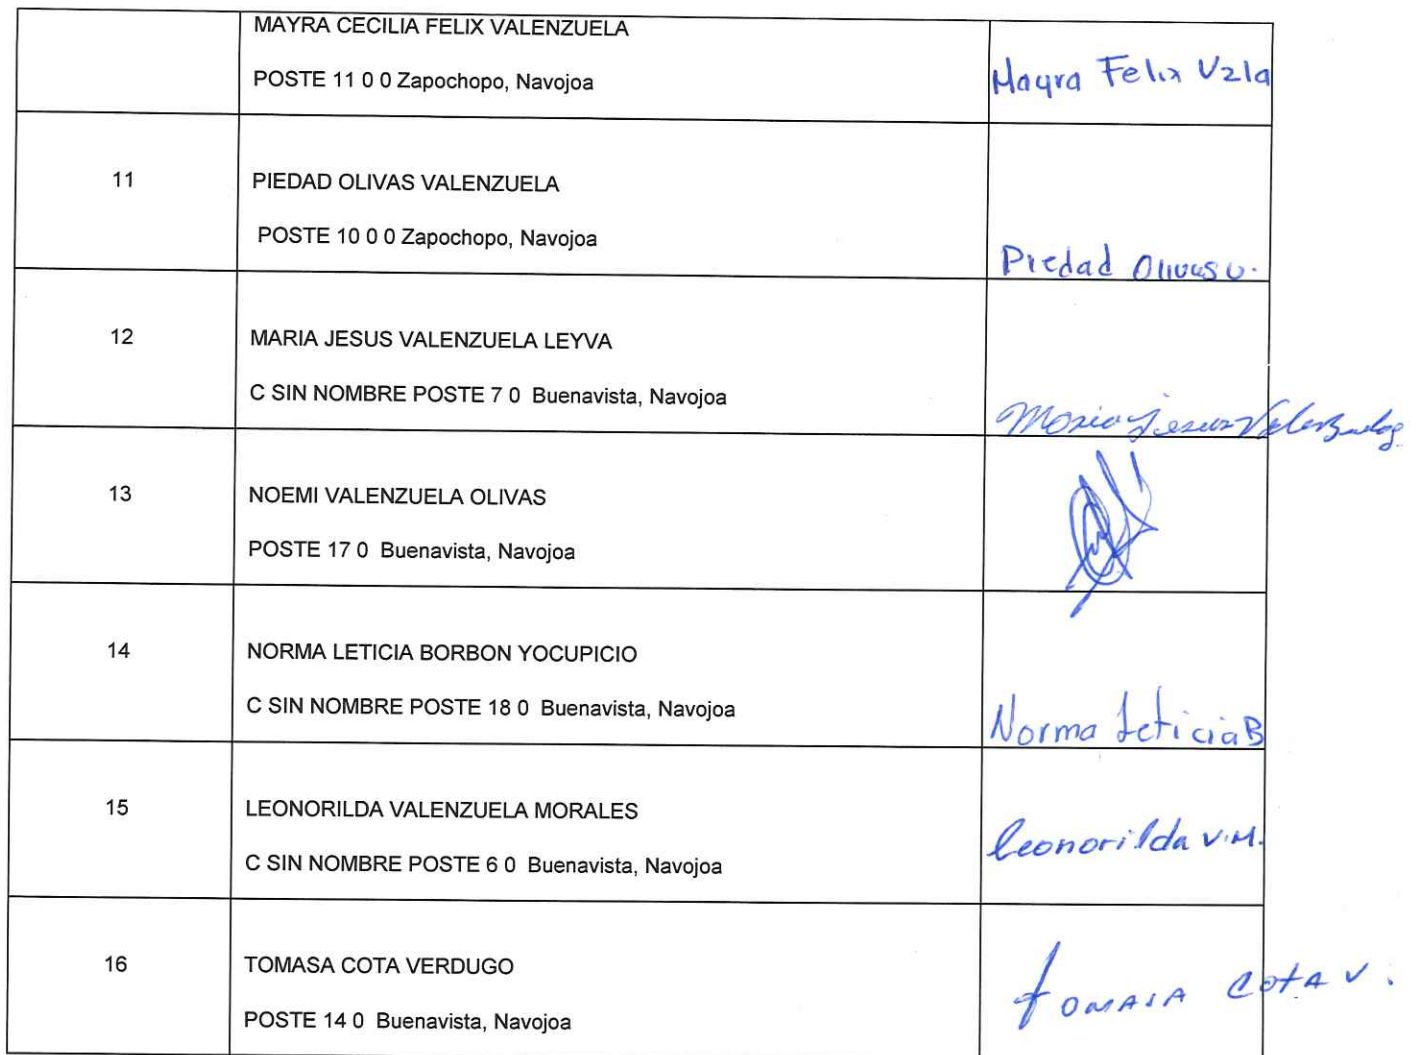 MAYRA CECILIA FELIX VALENZUELA
POSTE 11 0 0 Zapochopo, Navojoa
Mayra Felix Vzla
11
PIEDAD OLIVAS VALENZUELA
POSTE 10 0 0 Zapochopo, Navojoa
Piedad Olivas V.
12
MARIA JESUS VALENZUELA LEYVA
C SIN NOMBRE POSTE 7 0 Buenavista, Navojoa
Maria Jesus
13
NOEMI VALENZUELA OLIVAS
POSTE 17 0 Buenavista, Navojoa
14
NORMA LETICIA BORBON YOCUPICIO
C SIN NOMBRE POSTE 18 0 Buenavista, Navojoa
Norma Leticia B
15
LEONORILDA VALENZUELA MORALES
C SIN NOMBRE POSTE 6 0 Buenavista, Navojoa
Leonorilda V.M.
16
TOMASA COTA VERDUGO
POSTE 14 0 Buenavista, Navojoa
TOMASA COTA V.